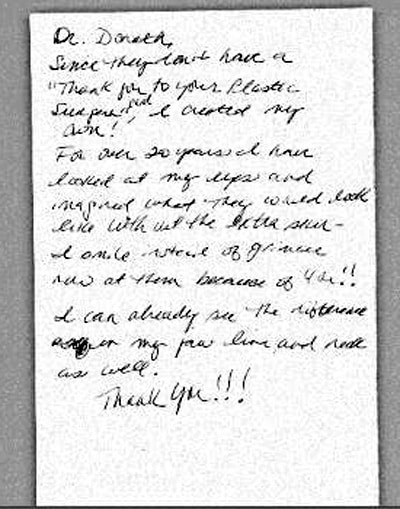 Dr. Donath,
Since they don't have a
"Thank you to your Plastic
Surgeon" card, I created my
own!
For over 20 years I have
looked at my eyes and
imagined what they would look
like without the extra skin -
I smile instead of grimace
now at them because of you!!
I can already see the difference
in my jaw line, and neck
as well.
Thank You!!!